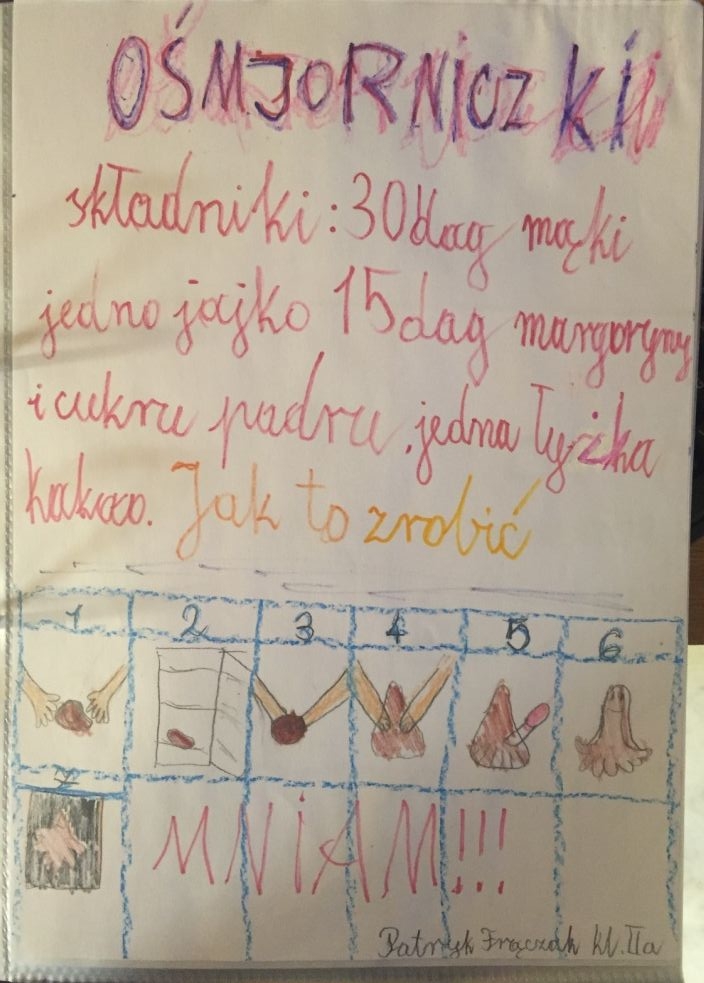 OŚMJORNiCZKi
składniki: 30dag mąki
jedno jajko 15dag margoryny
i cukru pudru, jedna łyżka
kakao. Jak to zrobić
1 2 3 4 5 6
7
MNiAM!!!
Patryk Frączak kl. IIa